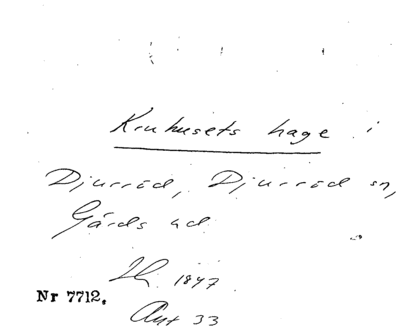 Kruhusets hage i
Djurröd, Djurröd sn,
Gärds hd
1847
Nr 7712.
Ant 33